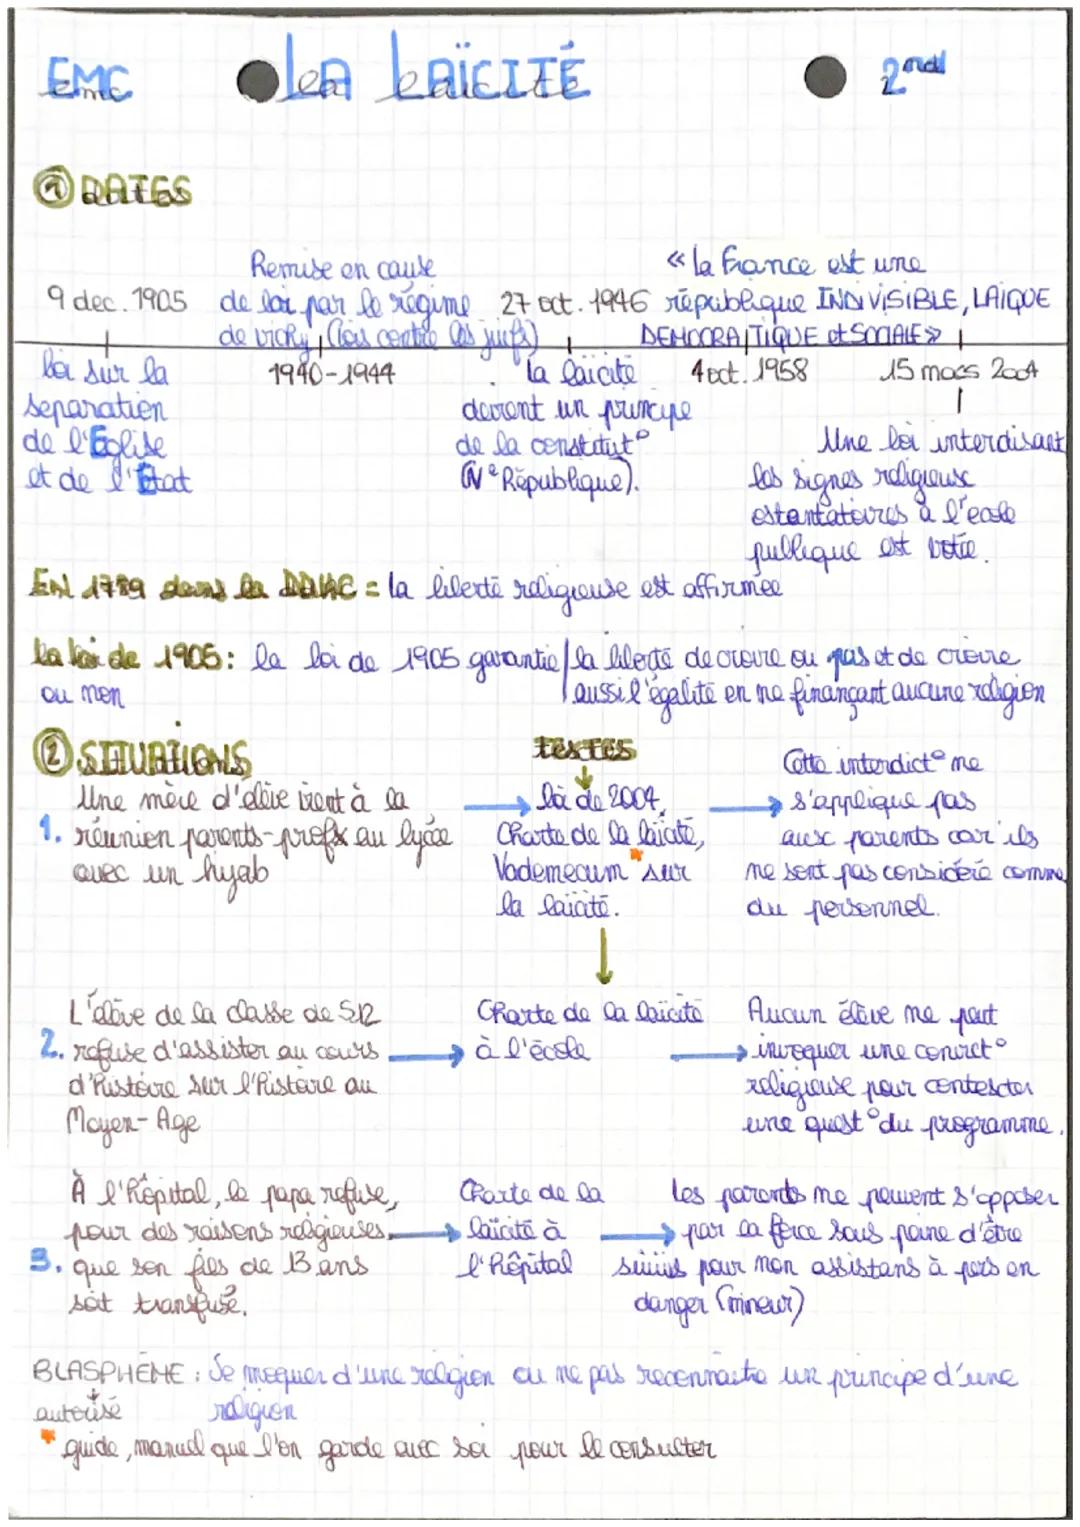 EMC LA LAÏCITÉ 2nd
① DATES
Remise en cause
de loi par le régime
de vichy (lois contre les juifs)
« la France est une
république INDIVISIBLE, LAIQUE
DEMOCRATIQUE et SOCIALE »
9 dec. 1905
27 oct. 1946
1940-1944
4 oct. 1958
15 mars 2004
loi sur la
separation
de l'Église
et de l'État
la laïcité
devient un principe
de la constitut°
(IVe République).
Une loi interdisant
les signes religieuse
ostentatoires à l'école
publique est votée.
EN 1789 dans la DDHC = la liberté religieuse est affirmée
la loi de 1905 : la loi de 1905 garantie la liberté de croire ou pas et de croire
ou non aussi l'égalité en ne finançant aucune religion
② SITUATIONS
textes
Une mère d'élève vient à la
1. réunion parents-profs au lycée
avec un hijab
loi de 2004,
Charte de la laïcité,
Vademecum * sur
la laïcité.
Cette interdict° ne
s'applique pas
aux parents car ils
ne sont pas considéré comme
du personnel.
L'élève de la classe de S12
2. refuse d'assister au cours
d'histoire sur l'histoire au
Moyen-Age
Charte de la laïcité
à l'école
Aucun élève ne peut
invoquer une convict°
religieuse pour contester
une quest° du programme.
À l'hôpital, le papa refuse,
pour des raisons religieuses,
3. que son fils de 13 ans
soit transfusé.
Charte de la
laïcité à
l'Hôpital
les parents ne peuvent s'opposer
par la force sous peine d'être
suivis pour non assistans à pers en
danger (mineur)
BLASPHÈME : Se moquer d'une religion ou ne pas reconnaitre un principe d'une
autorisé religion
* guide, manuel que l'on garde avec soi pour le consulter